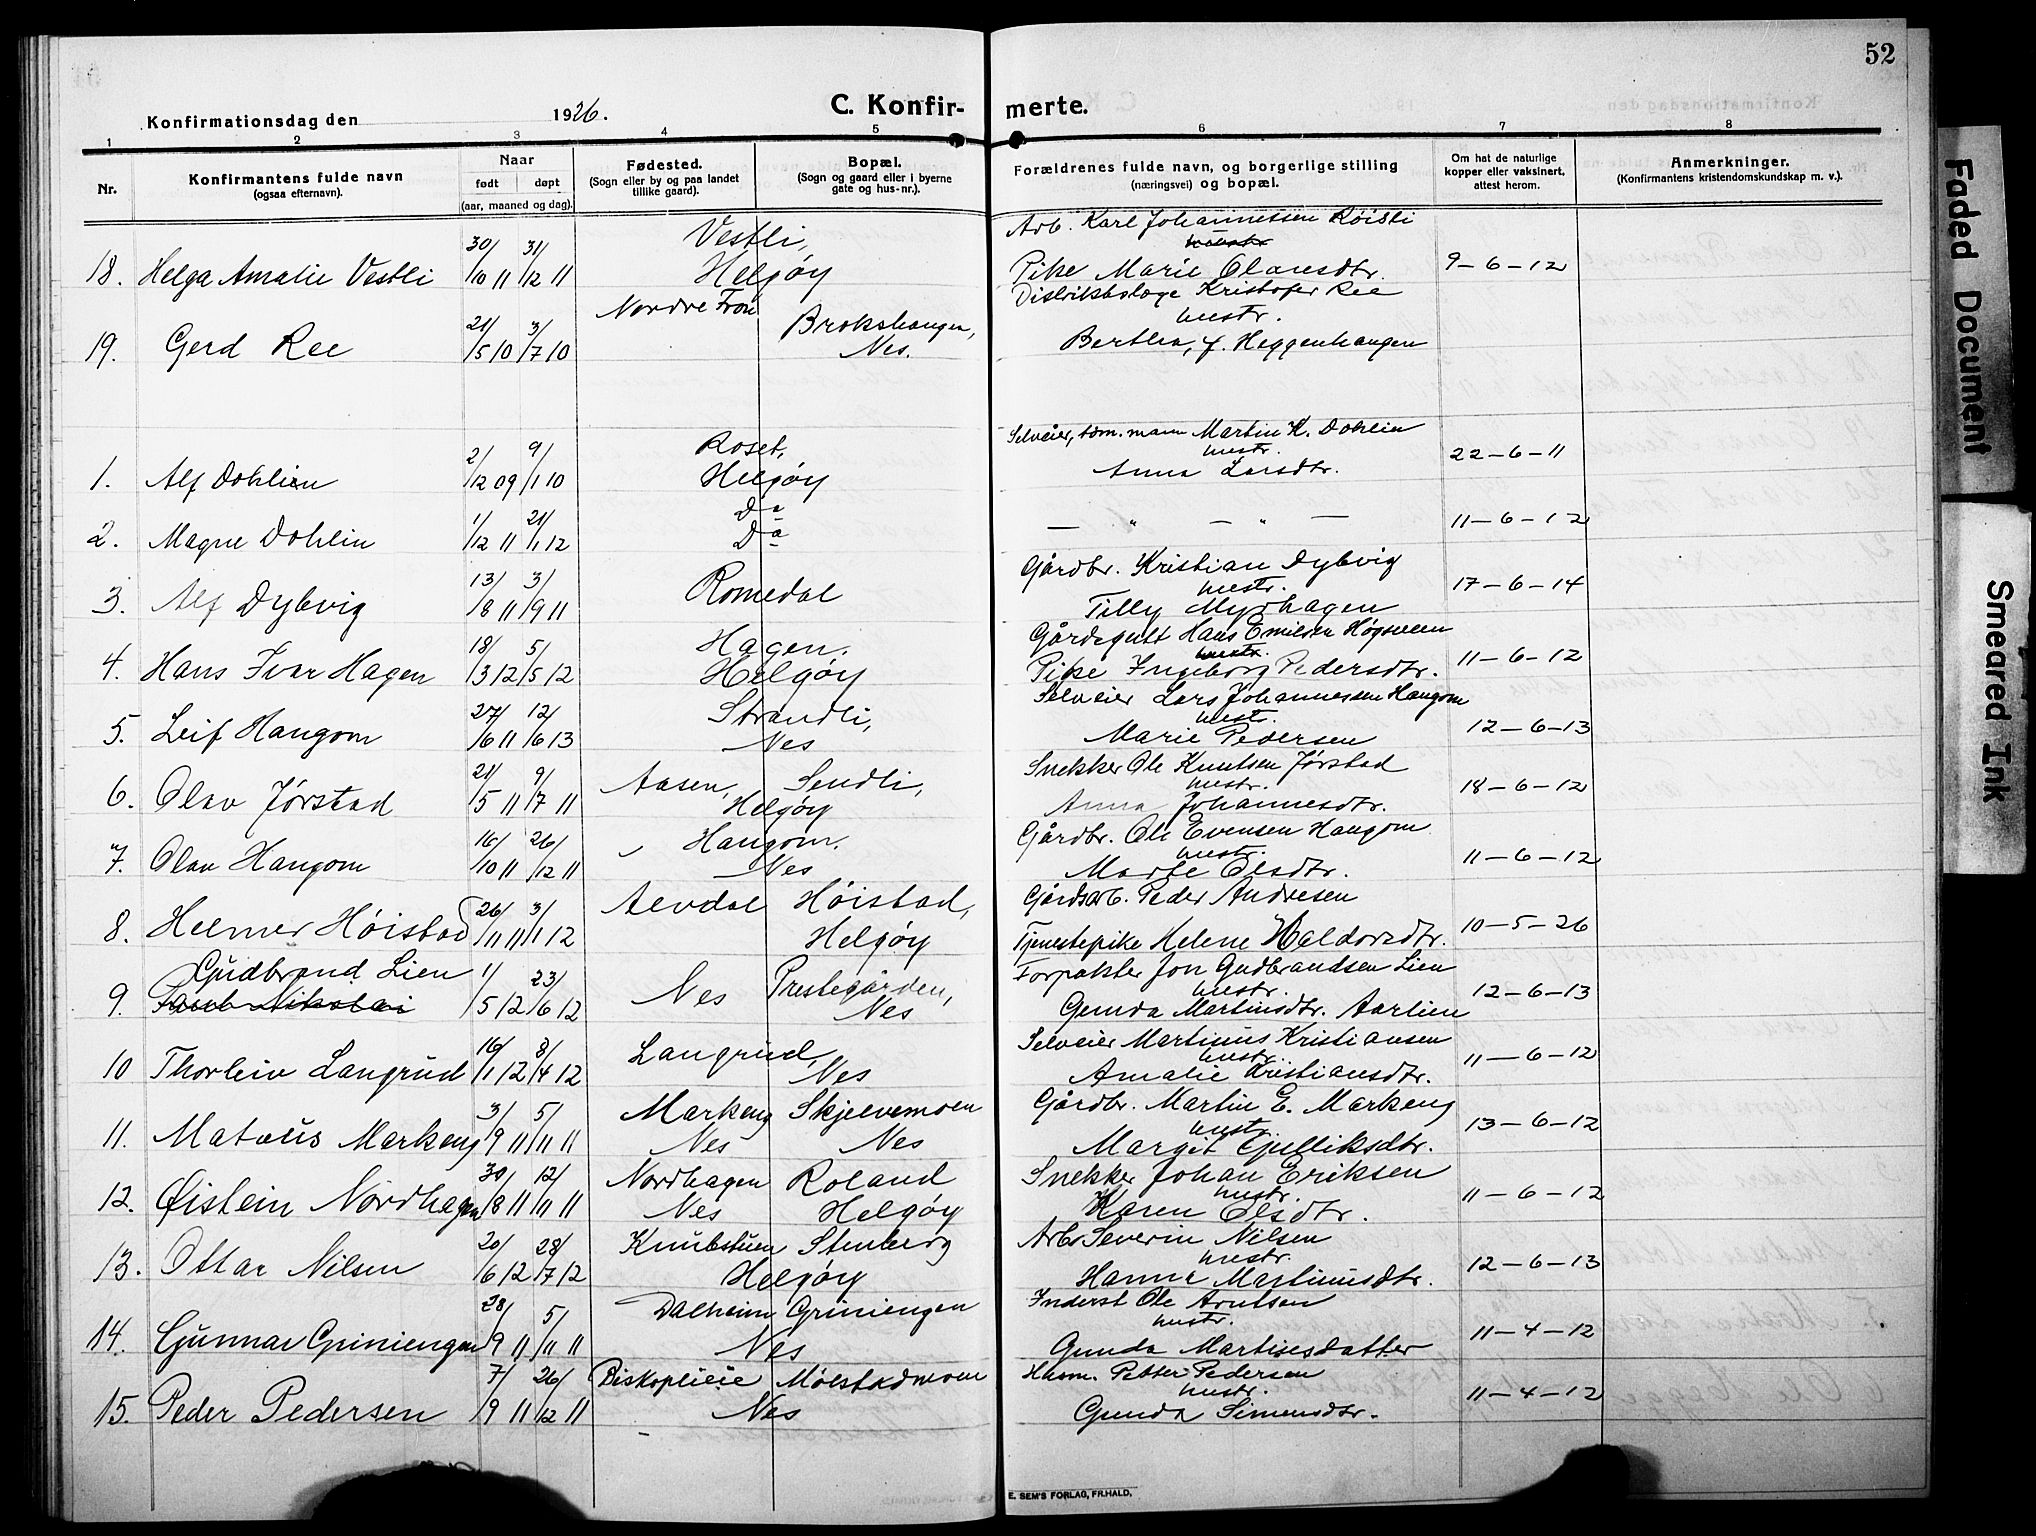 52
C. Konfir- merte.
Konfirmationsdag den 1926.
1 2 3 4 5 6 7 8
Nr.
Konfirmantens fulde navn
(ogsaa efternavn).
Naar
født døpt
(aar, maaned og dag).
Fødested.
(Sogn eller by og paa landet
tillike gaard).
Bopæl.
(Sogn og gaard eller i byerne
gate og hus-nr.).
Forældrenes fulde navn, og borgerlige stilling
(næringsvei) og bopæl.
Om hat de naturlige
kopper eller vaksinert,
attest herom.
Anmerkninger.
(Konfirmantens kristendomskundskap m. v.).
18. Helga Amalie Vestli 30/10 11 31/12 11 Vestli, Helgøy
Arb. Karl Johannessen Røisli
Pike Marie Olavesdtr. 9-6-12
19. Gerd Ree 21/5 10 3/7 10 Nordre Fron Brokshaugen, Nes.
Distriktslæge Kristofer Ree
hustr.
Bertha, f. Heggenhaugen
1. Alf Dohlin 2/12 09 9/1 10 Roset, Helgøy
Selveier, tøm.mann Martin K. Dohlin
hustr.
Anna Larsdtr. 22-6-11
2. Magne Dohlin 1/12 11 21/1 12 Do Do
— " — " — 11-6-12
3. Alf Dybvig 13/8 11 3/9 11 Romedal
Gårdbr. Kristian Dybvig
hustr.
Tilly Myrhagen 17-6-14
4. Hans Ivar Hagen 18/3 12 5/5 12 Hagen, Helgøy
Gårdsgutt Hans Emilsen Høgsveen
hustr.
Pike Ingeborg Pedersdtr. 11-6-12
5. Leif Haugom 27/6 11 12/6 13 Strandli, Nes
Selveier Lars Johannessen Haugom
hustr.
Marie Pedersen 12-6-13
6. Olav Jørstad 21/5 11 9/7 11 Aasen, Sendli, Helgøy
Snekker Ole Knutsen Jørstad
hustr.
Anna Johannesdtr. 18-6-12
7. Olav Haugom 16/10 11 26/12 11 Haugom, Nes
Gårdbr. Ole Evensen Haugom
hustr.
Marte Olsdtr. 11-6-12
8. Helmer Høistad 26/11 11 3/1 12 Alvdal Høistad, Helgøy
Gårdsarb. Peder Andresen
Tjenestepike Helene Haldorsdtr. 10-5-26
9. Gudbrand Lien 1/5 12 23/6 12 Nes Prestegården, Nes
Forpakter Jon Gudbrandsen Lien
hustr.
Gunda Martinsdtr. Aarlien 12-6-13
10 Thorleiv Langrud 16/1 12 8/4 12 Langrud, Nes
Selveier Martinus Kristiansen
hustr.
Amalie Kristiansdtr. 11-6-12
11. Mateus Markeng 3/9 11 5/11 11 Markeng Nes Skjelvemoen Nes
Gårdbr. Martin E. Markeng
hustr.
Margit Gulliksdtr. 13-6-12
12. Øistein Nordhagen 30/8 11 12/11 11 Nordhagen Nes Roland Helgøy
Snekker Johan Eriksen
hustr.
Karen Olsdtr. 11-6-12
13. Ottar Nilsen 20/6 12 28/7 12 Knubstuen Stenberg Helgøy
Arbr Severin Nilsen
hustr.
Hanna Martinusdtr. 12-6-13
14. Gunnar Griniengen 28/9 11 5/11 11 Dalheim Griniengen Nes
Inderst Ole Arntsen
hustr.
Gunda Martinesdatter 11-4-12
15. Peder Pedersen 7/9 11 26/12 11 Biskoplieie Mølstadmoen Nes
Husm. Petter Pedersen
hustr.
Gunda Simensdtr. 11-4-12
E. SEM'S FORLAG, FR.HALD.
Faded Document
Smeared Ink